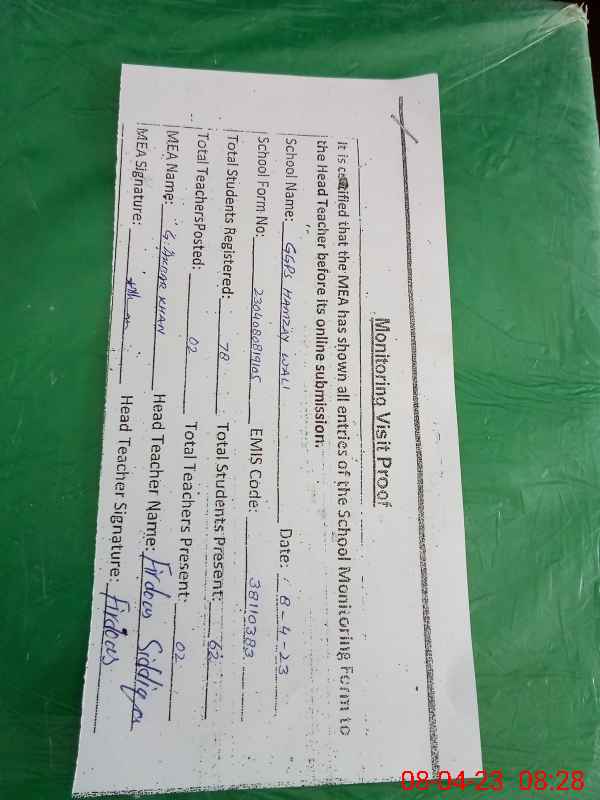 Monitoring Visit Proof
It is certified that the MEA has shown all entries of the School Monitoring Form to
the Head Teacher before its online submission.
School Name: GGPS HAMZAY WALI Date: 8-4-23
School Form No: 2304080819105 EMIS Code: 38110383
Total Students Registered: 78 Total Students Present: 62
Total TeachersPosted: 02 Total Teachers Present: 02
MEA Name: KHAN Head Teacher Name: Firdous Siddiqa
MEA Signature: Head Teacher Signature: Firdous
08-04-23 08:28